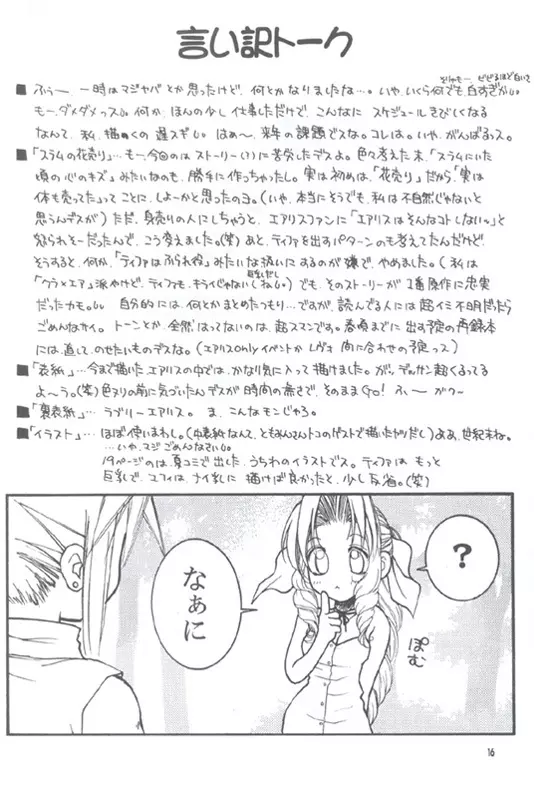 言い訳トーク
■ ふぅー、一時はマジヤバとか思ったけど、何とかなりましたな…。いや、いくら何でも白すぎが
も一、ダメダメっス。何か、ほんの少し仕事しただけで、こんなに スケジュールきびしくなる
なんて、私、描くの遅スギ はぁ〜、来年の課題でスな。コレは。いや、がんばるっス。
■ 「スラムの花売り」…もー、今回のは ストーリー(?)に苦労したデスよ。色々考えた末、「スラムにいた
頃の心のキズ」みたいなのも、勝手に作っちゃったし。実は初めは、「花売り」だから「実は
体も売ってた」ってことに、しよーかと思ったのヨ。(いや、本当にそうでも、私は不自然じゃないと
思うんデスが)ただ、身売りの人にしちゃうと、エアリスファンに「エアリスはそんなコトしないっ」と
怒られそーだったんで、こう考えました。(笑)あと、ティファを出すパターンのも考えてたんだけど、
そうすると、何か、「ティファはふられ役」みたいな扱いにするのが嫌で、やめました。(私は
「クラ×エア」派やけど、ティファも、キライじゃない)でも、そのストーリーが1番原作に忠実
だったカモ。 自分的には、何とかまとめたつもり…ですが、読んでる人には超イミ不明だったら
ごめんなサイ。トーンとか、全然はってないのは、超スマンです。春頃までに出す予定の再録本
には、直して、のせたいものデスな。(エアリスonlyイベントか レヴォ 間に合わせの予定っス)
■ 「表紙」…今まで描いたエアリスの中では、かなり気に入って描けました。が、デッサン超くるってる
よ〜う。(笑)色ヌリの前に気づいたんデスが時間の無さで、そのままGo! ふぃー ガクー
■ 「裏表紙」… ラブリーエアリス。 ま、こんなモンじゃろ。
■ 「イラスト」… ほぼ使いまわし。(中表紙なんて、ともみんさんトコのゲストで描いたヤツだし)ああ、世紀末ね。
…いや、マジごめんなさい
19ページのは、夏コミで出した、うちわのイラストでス。ティファは もっと
巨乳で、ユフィは、ナイ乳に 描けば良かったと、少し反省。(笑)
?
なぁに
ぽむ
16